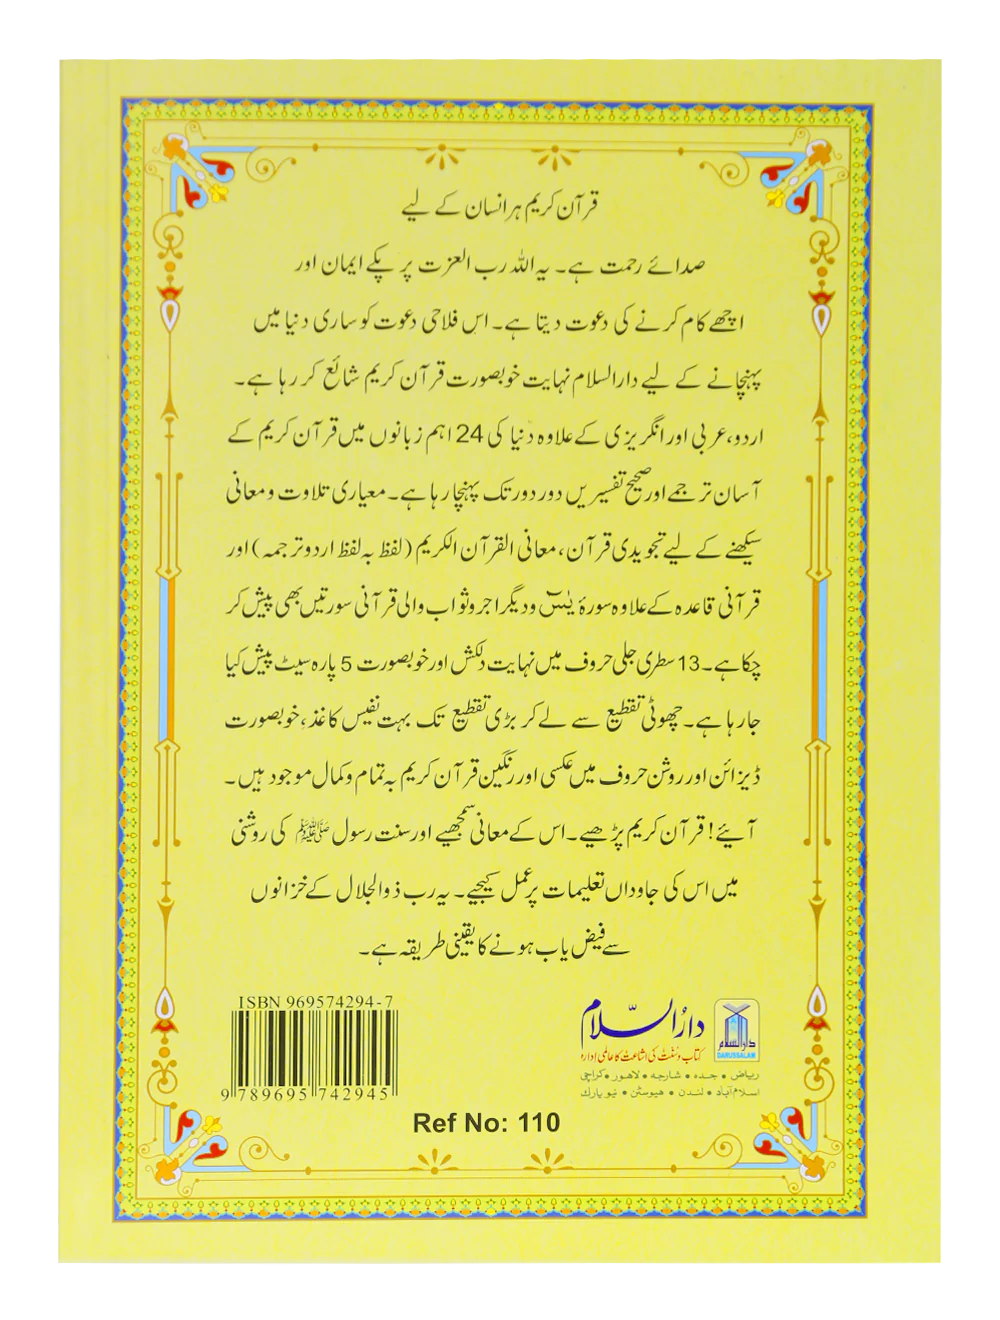 قرآن کریم ہر انسان کے لیے
صدائے رحمت ہے۔ یہ اللہ رب العزت پر پکے ایمان اور
اچھے کام کرنے کی دعوت دیتا ہے۔ اس فلاحی دعوت کو ساری دنیا میں
پہنچانے کے لیے دارالسلام نہایت خوبصورت قرآن کریم شائع کر رہا ہے۔
اردو، عربی اور انگریزی کے علاوہ دنیا کی 24 اہم زبانوں میں قرآن کریم کے
آسان ترجمے اور صحیح تفسیریں دور دور تک پہنچا رہا ہے۔ معیاری تلاوت و معانی
سیکھنے کے لیے تجویدی قرآن، معانی القرآن الکریم (لفظ بہ لفظ اردو ترجمہ) اور
قرآنی قاعدہ کے علاوہ سورۂ یٰسٓ و دیگر اجر و ثواب والی قرآنی سورتیں بھی پیش کر
چکا ہے۔ 13 سطری جلی حروف میں نہایت دلکش اور خوبصورت 5 پارہ سیٹ پیش کیا
جا رہا ہے۔ چھوٹی تقطیع سے لے کر بڑی تقطیع تک بہت نفیس کاغذ، خوبصورت
ڈیزائن اور روشن حروف میں عکسی اور رنگین قرآن کریم بہ تمام و کمال موجود ہیں۔
آیئے! قرآن کریم پڑھیے۔ اس کے معانی سمجھیے اور سنت رسول ﷺ کی روشنی
میں اس کی جاوداں تعلیمات پر عمل کیجیے۔ یہ رب ذوالجلال کے خزانوں
سے فیض یاب ہونے کا یقینی طریقہ ہے۔
دارالسلام
DARUSSALAM
دارُالسّلام
کتاب و سُنّت کی اشاعت کا عالمی ادارہ
ریاض • جدہ • شارجہ • لاہور • کراچی
اسلام آباد • لندن • ہیوسٹن • نیو یارک
ISBN 969574294-7
9 789695 742945
Ref No: 110